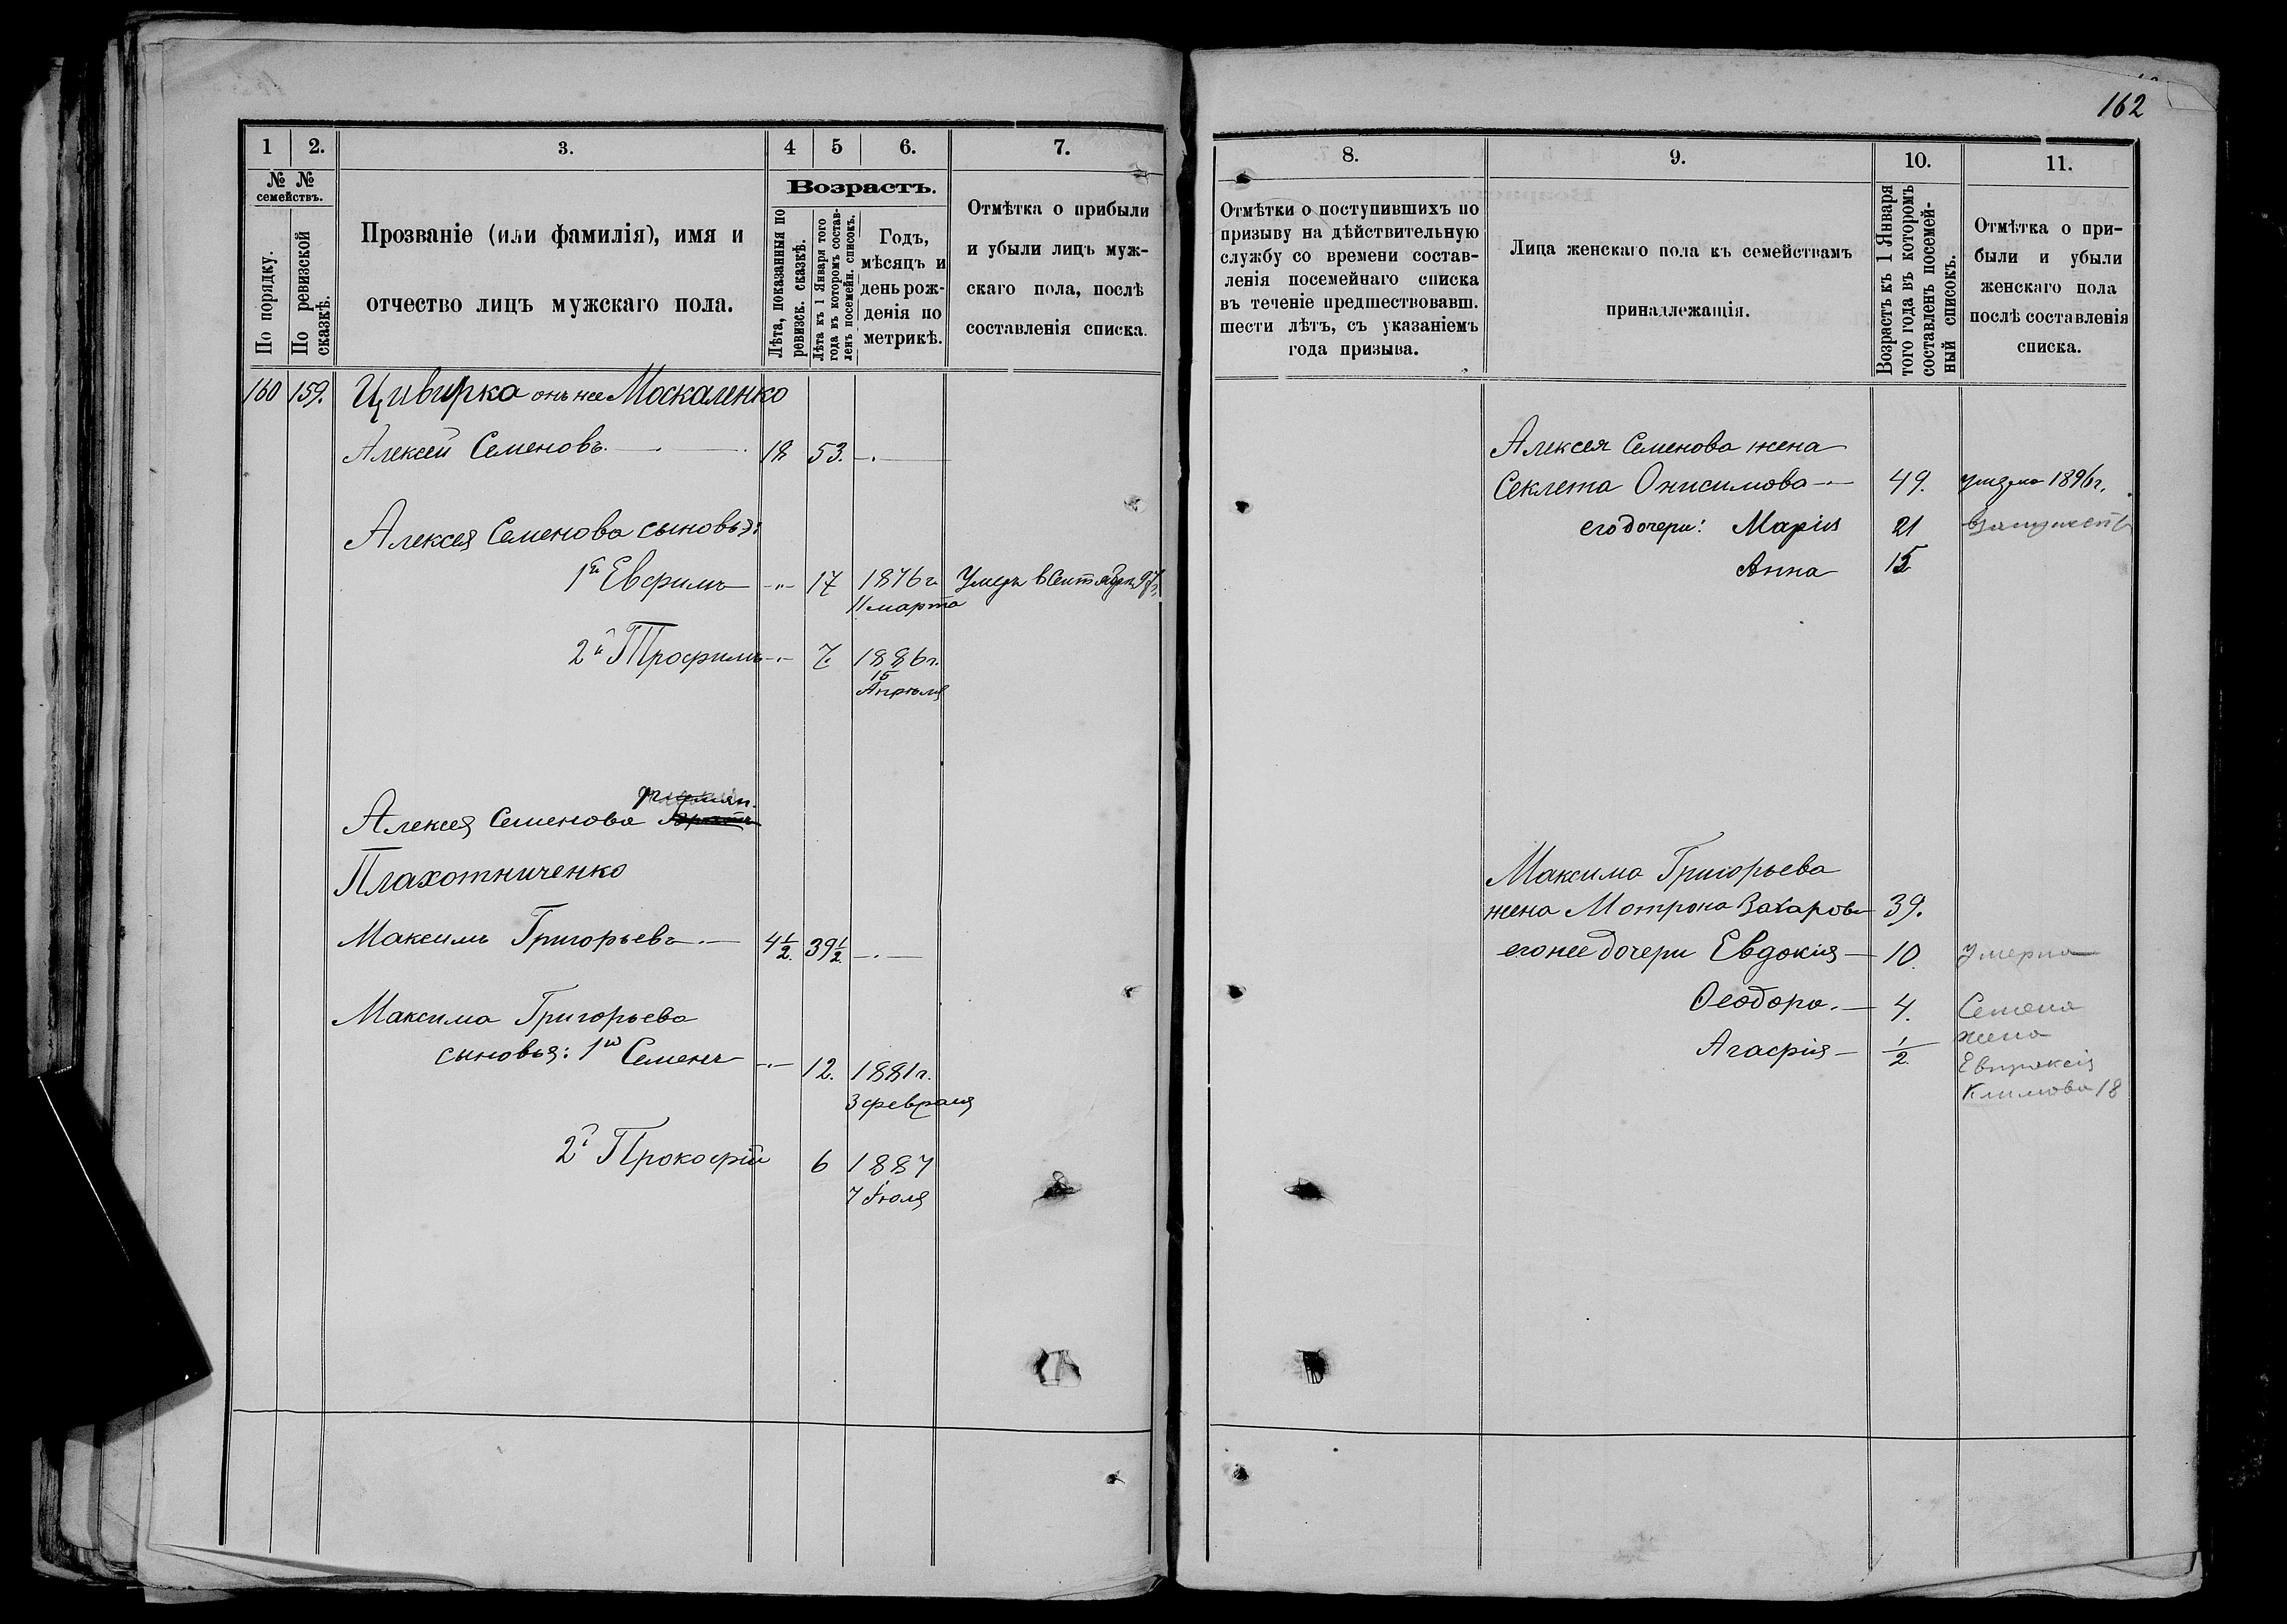 162
1 2. 3. 4 5 6. 7.
№ №
семействъ.
По порядку.
По ревизской
сказкѣ.
Прозваніе (или фамилія), имя и
отчество лицъ мужскаго пола.
Возрастъ.
Лѣта, показанныя по
ревизск. сказкѣ.
Лѣта къ 1 Января того
года въ которомъ состав-
ленъ посемейн. списокъ.
Годъ,
мѣсяцъ и
день рож-
денія по
метрикѣ.
Отмѣтка о прибыли
и убыли лицъ муж-
скаго пола, послѣ
составленія списка.
160 159. Цивирка онъ же Москаленко
Алексей Семеновъ. 18 53.
Алексея Семенова сыновья:
1й Евфимъ 17 1876 г. Умеръ в Сентябре 97 г.
11 марта
2й Трофимъ 7. 1886 г.
15
Апреля
Алексея Семенова
Плахотниченко
Максимъ Григорьевъ 4 1/2. 39 1/2.
Максима Григорьева
сыновья: 1й Семенъ 12. 1881 г.
3 февраля
2й Прокофій 6 1887
7 Іюля
8. 9. 10. 11.
Отмѣтки о поступившихъ по
призыву на дѣйствительную
службу со времени состав-
ленія посемейнаго списка
въ теченіе предшествовавш.
шести лѣтъ, съ указаніемъ
года призыва.
Лица женскаго пола къ семействамъ
принадлежащія.
Возрастъ къ 1 Января
того года въ которомъ
составленъ посемей-
ный списокъ.
Отмѣтка о при-
были и убыли
женскаго пола
послѣ составленія
списка.
Алексея Семенова жена
Секлета Онисимова 49. 1896 г.
его дочери: Марія 21 взамужеств
Анна 15
Максима Григорьева
жена Мотрона Захарова 39.
его же дочери Евдокія 10. Умерла
Феодора. 4. Семена
жена
Агафія 1/2. Евпраксія
Климова 18